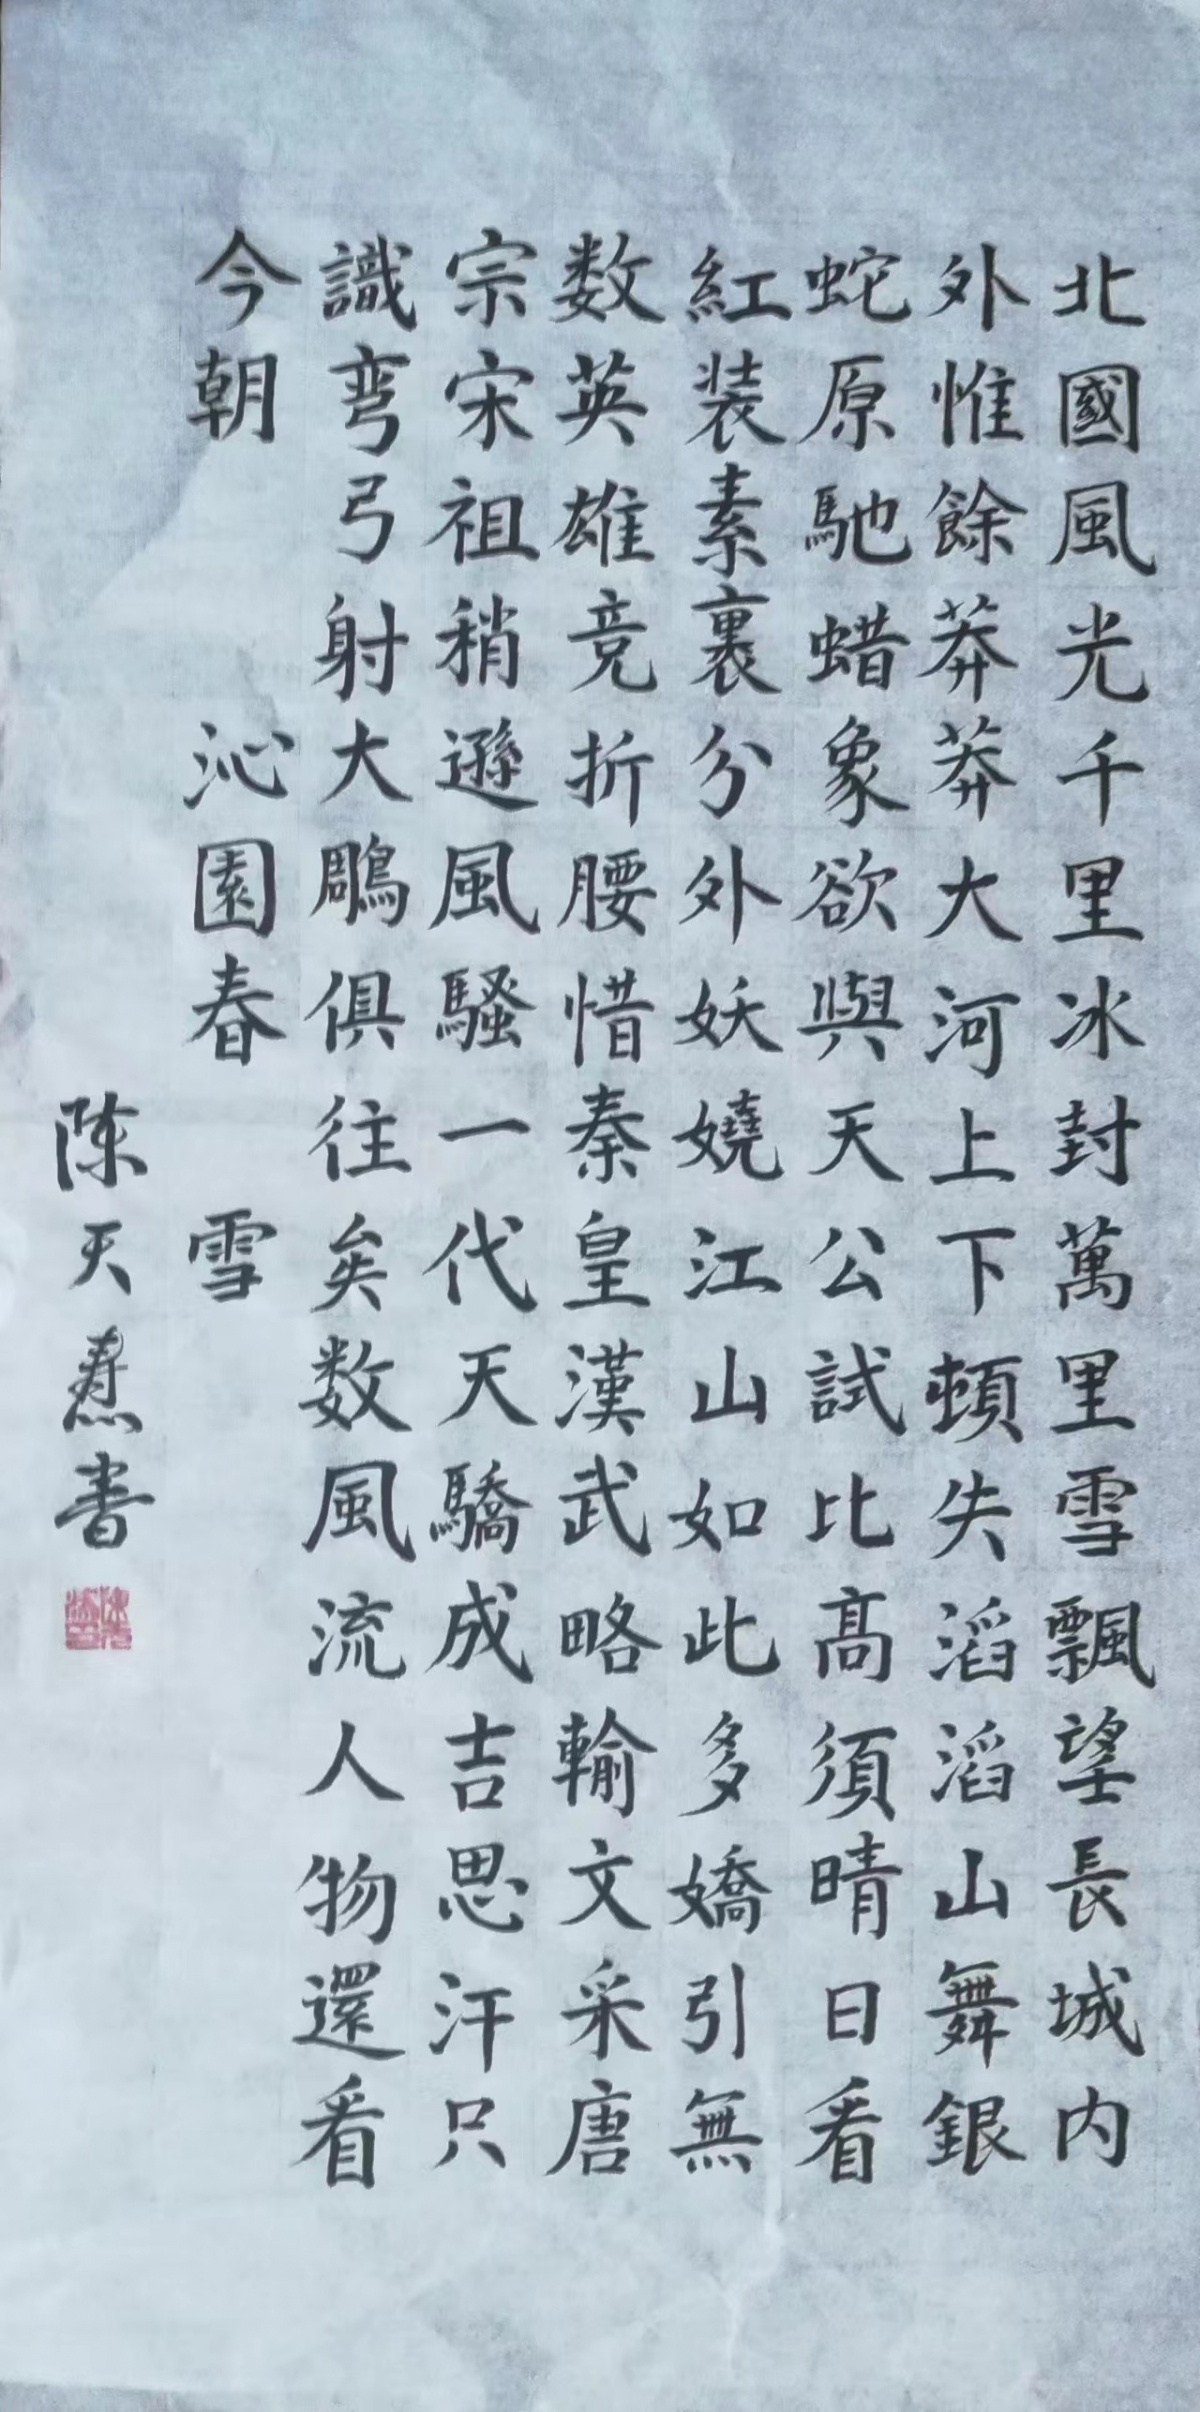 北國風光千里冰封萬里雪飄望長城内
外惟餘莽莽大河上下頓失滔滔山舞銀
蛇原馳蜡象欲與天公試比髙須晴日看
紅装素裹分外妖嬈江山如此多嬌引無
数英雄竞折腰惜秦皇漢武略輸文采唐
宗宋祖稍遜風騷一代天驕成吉思汗只
識弯弓射大鵰俱往矣数風流人物還看
今朝 沁園春 雪
陈天焘書